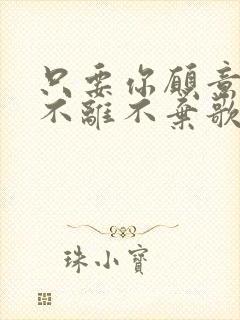 只要你願意
不離不棄歌
珠小寶